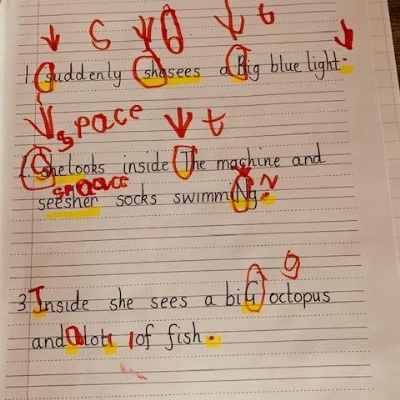 S t
1. suddenly shesees a Big blue light.
space t
2. Shelooks inside The machine and
space N
seesher socks swimmiNg.
g
3 Inside she sees a biG octopus
and alots of fish.